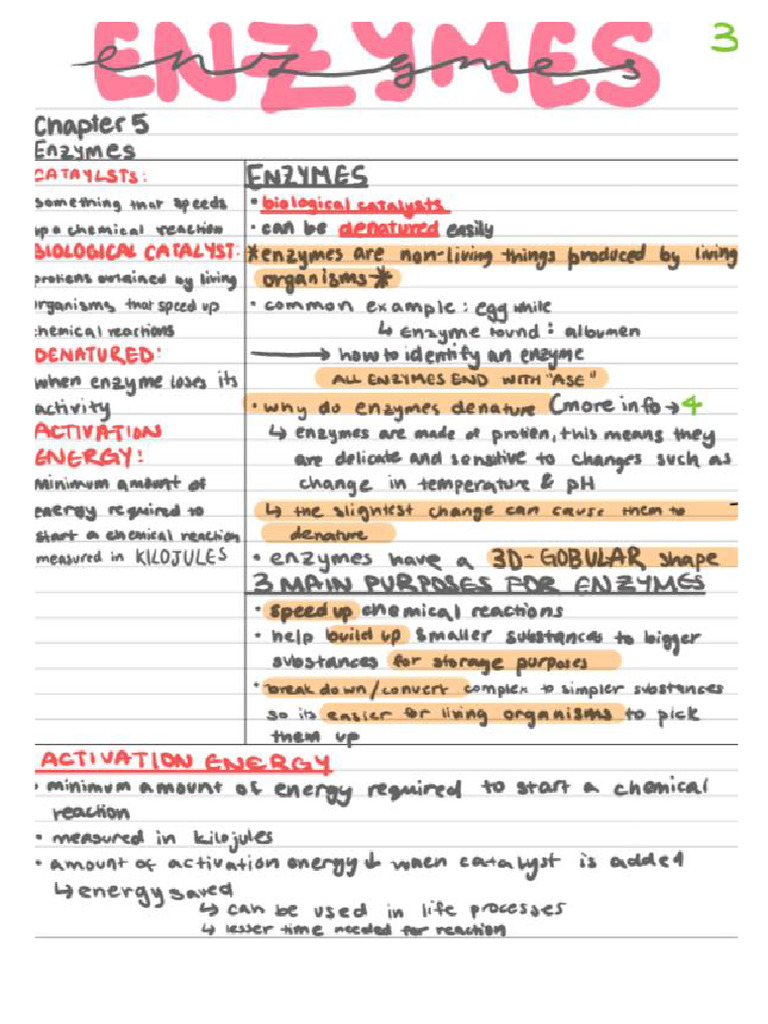 ENZYMES
enzymes
3
Chapter 5
Enzymes
CATAYLSTS:
something that speeds
up a chemical reaction
BIOLOGICAL CATALYST:
protiens ontained by living
organisms that speed up
chemical reactions
DENATURED:
when enzyme loses its
activity
ACTIVATION
ENERGY:
minimum amount of
energy required to
start a chemical reaction
measured in KILOJULES
ENZYMES
• biological catalysts
• can be denatured easily
*enzymes are non-living things produced by living
organisms*
• common example: egg while
↳ enzyme found: albumen
→ how to identify an enzyme
ALL ENZYMES END WITH "ASE"
• why do enzymes denature (more info → 4
↳ enzymes are made of protien, this means they
are delicate and sensitive to changes such as
change in temperature & pH
↳ the slightest change can cause them to
denature
• enzymes have a 3D-GOBULAR shape
3 MAIN PURPOSES FOR ENZYMES
• speed up chemical reactions
• help build up smaller substances to bigger
substances for storage purposes
• break down/convert complex to simpler substances
so its easier for living organisms to pick
them up
ACTIVATION ENERGY
• minimum amount of energy required to start a chemical
reaction
• measured in kilojules
• amount of activation energy ↓ when catalyst is added
↳ energy saved
↳ can be used in life processes
↳ lesser time needed for reaction